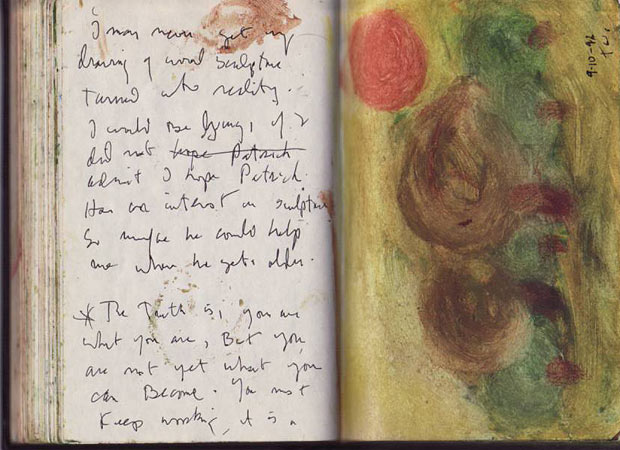 I may never get my
drawing of wood sculpture
Turned into reality.
I would be lying, if I
did not hope Patrick
admit I hope Patrick.
Has an interest in sculpture
So maybe he could help
me when he gets older.
* The Truth is, you are
what you are, But you
are not yet what you
can Become. You must
Keep working, it is a
9-10-92